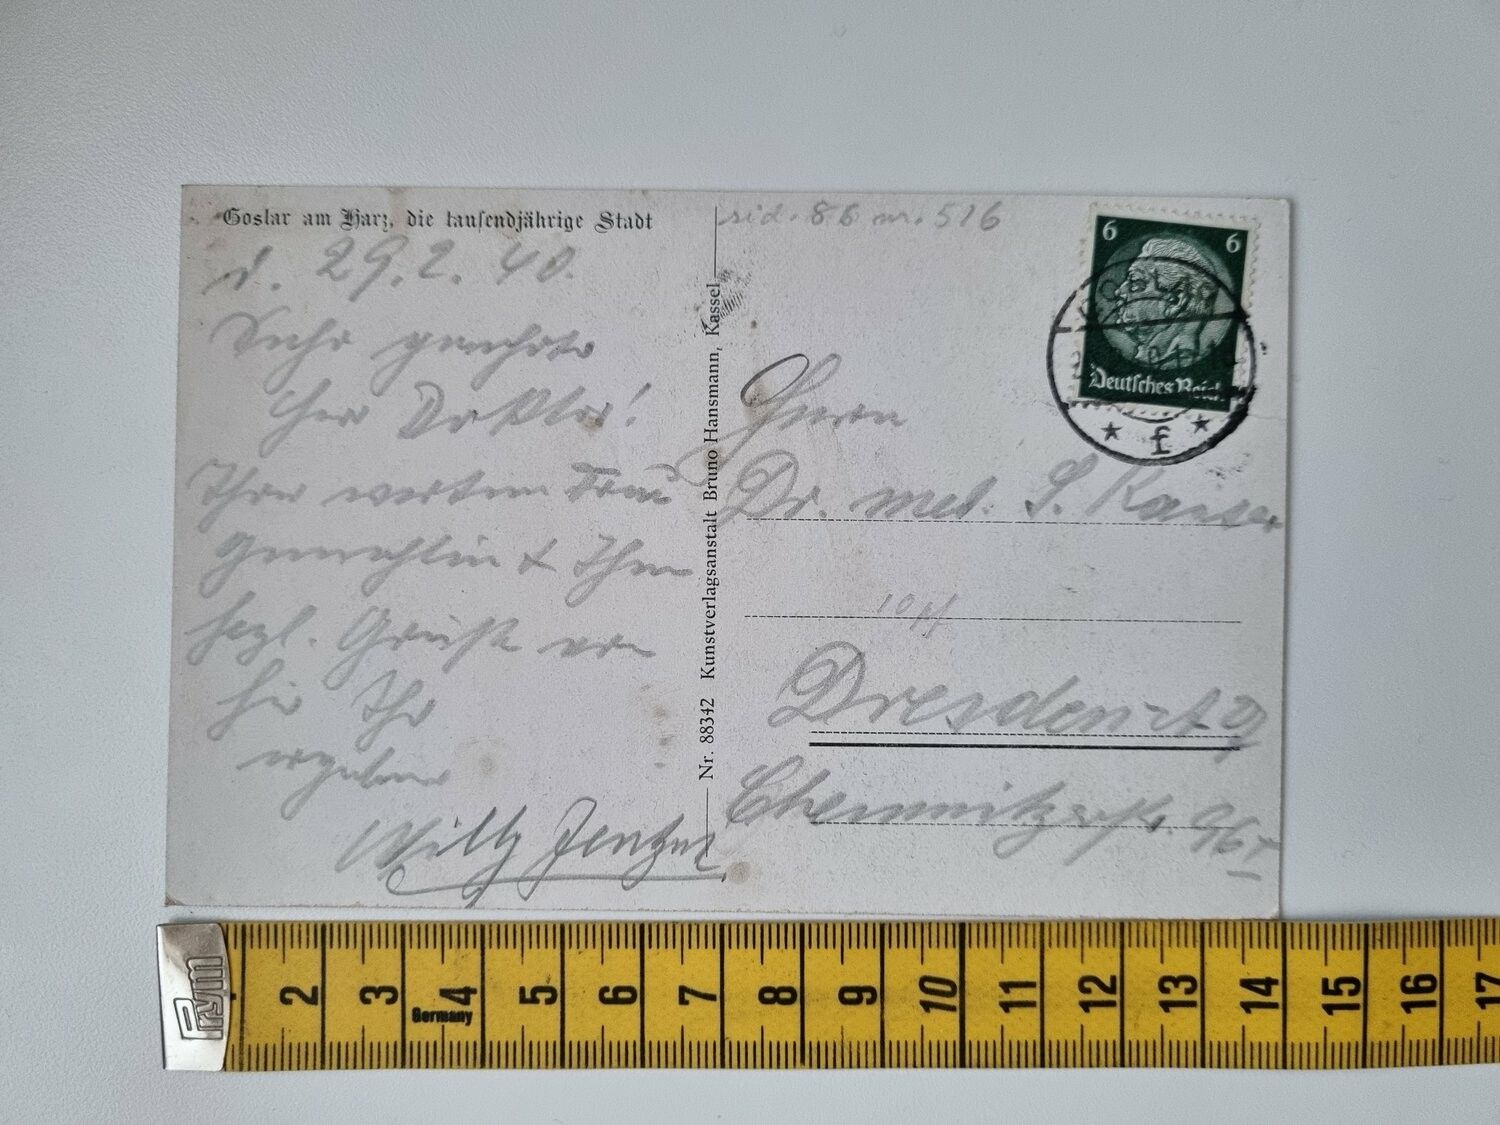 Goslar am Harz, die tausendjährige Stadt
d. 29.2.40.
Sehr geehrter
Herr Doktor!
Ihrer werten Frau
Gemahlin & Ihnen
herzl. Grüße von
hier Ihr
ergebener
Willy
Nr. 88342 Kunstverlagsanstalt Bruno Hansmann, Kassel
nr. 516
6 6
Deutsches Reich
* f *
Herrn
Dr. med. S.
10 Pf
Dresden-A
Chemnitzerstr. 96
Prym
2 3 4 5 6 7 8 9 10 11 12 13 14 15 16 17
Germany